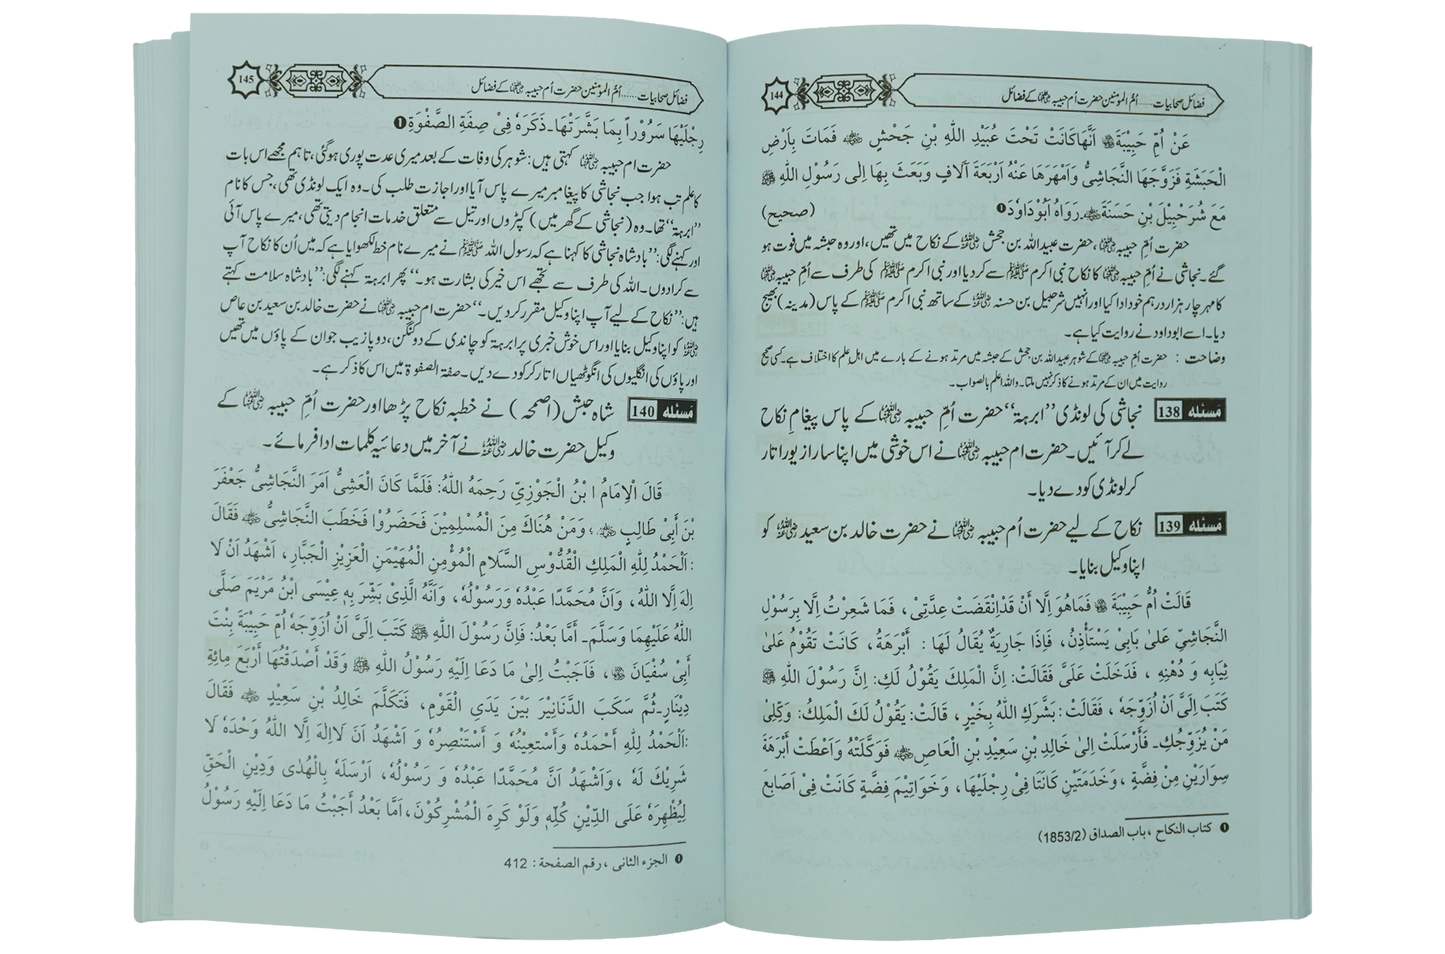 144
فضائل صحابیات...... اُمّ المؤمنین حضرت اُم حبیبہ ؓ کے فضائل
عَنْ اُمِّ حَبِيْبَةَ ؓ اَنَّهَا كَانَتْ تَحْتَ عُبَيْدِ اللّٰهِ بْنِ جَحْشٍ ؓ فَمَاتَ بِاَرْضِ
الْحَبَشَةِ فَزَوَّجَهَا النَّجَاشِيُّ وَاَمْهَرَهَا عَنْهُ اَرْبَعَةَ آلَافٍ وَبَعَثَ بِهَا اِلٰى رَسُوْلِ اللّٰهِ ﷺ
مَعَ شُرَحْبِيْلَ بْنِ حَسَنَةَ ؓ۔ رَوَاهُ اَبُوْدَاوٗدَ ❶ (صحيح)
حضرت اُمِّ حبیبہ ؓ، حضرت عبید اللہ بن جحش ؓ کے نکاح میں تھیں، اور وہ حبشہ میں فوت ہو
گئے۔ نجاشی نے اُمِّ حبیبہ ؓ کا نکاح نبی اکرم ﷺ سے کر دیا اور نبی اکرم ﷺ کی طرف سے اُمِّ حبیبہ ؓ
کا مہر چار ہزار درہم خود ادا کیا اور انہیں شرحبیل بن حسنہ ؓ کے ساتھ نبی اکرم ﷺ کے پاس (مدینہ) بھیج
دیا۔ اسے ابوداود نے روایت کیا ہے۔
وضاحت : حضرت اُمِّ حبیبہ ؓ کے شوہر عبید اللہ بن جحش کے حبشہ میں مرتد ہونے کے بارے میں اہل علم کا اختلاف ہے۔ کسی صحیح
روایت میں ان کے مرتد ہونے کا ذکر نہیں ملتا۔ واللہ اعلم بالصواب۔
مسئلہ 138 نجاشی کی لونڈی ’’ابرہۃ‘‘ حضرت اُمِّ حبیبہ ؓ کے پاس پیغامِ نکاح
لے کر آئیں۔ حضرت ام حبیبہ ؓ نے اس خوشی میں اپنا سارا زیور اتار
کر لونڈی کو دے دیا۔
مسئلہ 139 نکاح کے لیے حضرت اُم حبیبہ ؓ نے حضرت خالد بن سعید ؓ کو
اپنا وکیل بنایا۔
قَالَتْ اُمُّ حَبِيْبَةَ ؓ فَمَا هُوَ اِلَّا اَنْ قَدِ انْقَضَتْ عِدَّتِيْ، فَمَا شَعِرْتُ اِلَّا بِرَسُوْلِ
النَّجَاشِيِّ عَلٰى بَابِيْ يَسْتَأْذِنُ، فَاِذَا جَارِيَةٌ يُقَالُ لَهَا : اَبْرَهَةُ، كَانَتْ تَقُوْمُ عَلٰى
ثِيَابِهٖ وَ دُهْنِهٖ ، فَدَخَلَتْ عَلَيَّ فَقَالَتْ: اِنَّ الْمَلِكَ يَقُوْلُ لَكِ: اِنَّ رَسُوْلَ اللّٰهِ ﷺ
كَتَبَ اِلَيَّ اَنْ اُزَوِّجَهٗ ، فَقَالَتْ: بَشَّرَكِ اللّٰهُ بِخَيْرٍ، قَالَتْ: يَقُوْلُ لَكَ الْمَلِكُ: وَكِّلِيْ
مَنْ يُزَوِّجُكِ۔ فَأَرْسَلَتْ اِلٰى خَالِدِ بْنِ سَعِيْدِ بْنِ الْعَاصِ ؓ فَوَكَّلَتْهُ وَاَعْطَتْ اَبْرَهَةَ
سِوَارَيْنِ مِنْ فِضَّةٍ ، وَخَدَمَتَيْنِ كَانَتَا فِيْ رِجْلَيْهَا، وَخَوَاتِيْمَ فِضَّةٍ كَانَتْ فِيْ اَصَابِعَ
❶ كتاب النكاح ، باب الصداق (1853/2)
145
فضائل صحابیات...... اُمّ المؤمنین حضرت اُم حبیبہ ؓ کے فضائل
رِجْلَيْهَا سَرُوْراً بِمَا بَشَّرَتْهَا۔ ذَكَرَهٗ فِيْ صِفَةِ الصَّفْوَةِ ❶
حضرت ام حبیبہ ؓ کہتی ہیں: شوہر کی وفات کے بعد میری عدت پوری ہو گئی، تاہم مجھے اس بات
کا علم تب ہوا جب نجاشی کا پیغامبر میرے پاس آیا اور اجازت طلب کی۔ وہ ایک لونڈی تھی، جس کا نام
’’ابرہۃ‘‘ تھا۔ وہ (نجاشی کے گھر میں) کپڑوں اور تیل سے متعلق خدمات انجام دیتی تھی، میرے پاس آئی
اور کہنے لگی: ’’بادشاہ نجاشی کا کہنا ہے کہ رسول اللہ ﷺ نے میرے نام خط لکھوایا ہے کہ میں اُن کا نکاح آپ
سے کرا دوں۔ اللہ کی طرف سے تجھے اس خیر کی بشارت ہو۔‘‘ پھر ابرہۃ کہنے لگی: ’’بادشاہ سلامت کہتے
ہیں: ’’نکاح کے لیے آپ اپنا وکیل مقرر کر دیں۔‘‘ حضرت ام حبیبہ ؓ نے حضرت خالد بن سعید بن عاص
ؓ کو اپنا وکیل بنایا اور اس خوش خبری پر ابرہۃ کو چاندی کے دو کنگن، دو پازیب جو ان کے پاؤں میں تھیں
اور پاؤں کی انگلیوں کی انگوٹھیاں اتار کر کو دے دیں۔ صفۃ الصفوۃ میں اس کا ذکر ہے۔
مسئلہ 140 شاہ حبش (اصحمہ) نے خطبہ نکاح پڑھا اور حضرت اُمِّ حبیبہ ؓ کے
وکیل حضرت خالد ؓ نے آخر میں دعائیہ کلمات ادا فرمائے۔
قَالَ الْاِمَامُ ابْنُ الْجَوْزِيِّ رَحِمَهُ اللّٰهُ: فَلَمَّا كَانَ الْعَشِيُّ اَمَرَ النَّجَاشِيُّ جَعْفَرَ
بْنَ اَبِيْ طَالِبٍ ؓ ، وَمَنْ هُنَاكَ مِنَ الْمُسْلِمِيْنَ فَحَضَرُوْا فَخَطَبَ النَّجَاشِيُّ ؓ فَقَالَ
:اَلْحَمْدُ لِلّٰهِ الْمَلِكِ الْقُدُّوْسِ السَّلَامِ الْمُؤْمِنِ الْمُهَيْمِنِ الْعَزِيْزِ الْجَبَّارِ، اَشْهَدُ اَنْ لَا
اِلٰهَ اِلَّا اللّٰهُ، وَاَنَّ مُحَمَّدًا عَبْدُهٗ وَرَسُوْلُهٗ، وَاَنَّهُ الَّذِيْ بَشَّرَ بِهٖ عِيْسَى ابْنُ مَرْيَمَ صَلَّى
اللّٰهُ عَلَيْهِمَا وَسَلَّمَ۔ اَمَّا بَعْدُ: فَاِنَّ رَسُوْلَ اللّٰهِ ﷺ كَتَبَ اِلَيَّ اَنْ اُزَوِّجَهٗ اُمَّ حَبِيْبَةَ بِنْتَ
اَبِيْ سُفْيَانَ ؓ ، فَاَجَبْتُ اِلٰى مَا دَعَا اِلَيْهِ رَسُوْلُ اللّٰهِ ﷺ وَقَدْ اَصْدَقْتُهَا اَرْبَعَ مِائَةِ
دِيْنَارٍ۔ ثُمَّ سَكَبَ الدَّنَانِيْرَ بَيْنَ يَدَيِ الْقَوْمِ، فَتَكَلَّمَ خَالِدُ بْنِ سَعِيْدٍ ؓ فَقَالَ
:اَلْحَمْدُ لِلّٰهِ اَحْمَدُهٗ وَاَسْتَعِيْنُهٗ وَ اَسْتَنْصِرُهٗ وَ اَشْهَدُ اَنَ لَااِلٰهَ اِلَّا اللّٰهُ وَحْدَهٗ لَا
شَرِيْكَ لَهٗ ، وَاَشْهَدُ اَنَّ مُحَمَّدًا عَبْدُهٗ وَ رَسُوْلُهٗ، اَرْسَلَهٗ بِالْهُدٰى وَدِيْنِ الْحَقِّ
لِيُظْهِرَهٗ عَلَى الدِّيْنِ كُلِّهٖ وَلَوْ كَرِهَ الْمُشْرِكُوْنَ، اَمَّا بَعْدُ اَجَبْتُ مَا دَعَا اِلَيْهِ رَسُوْلُ
❶ الجزء الثانى ، رقم الصفحة : 412